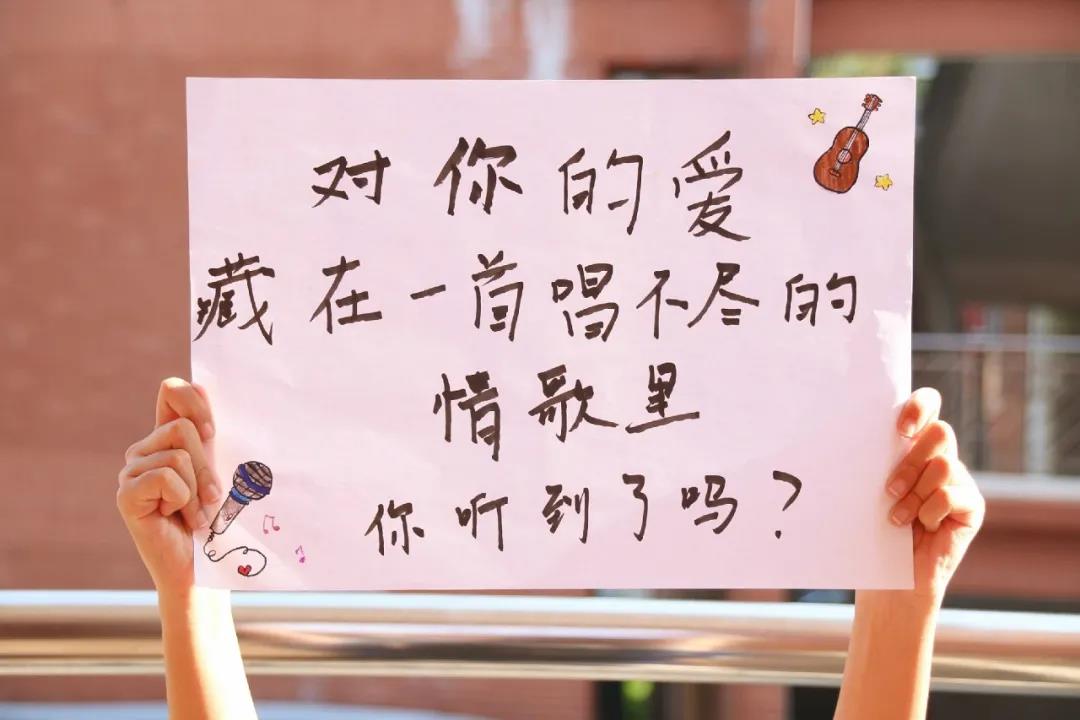 对你的爱
藏在一首唱不尽的
情歌里
你听到了吗?